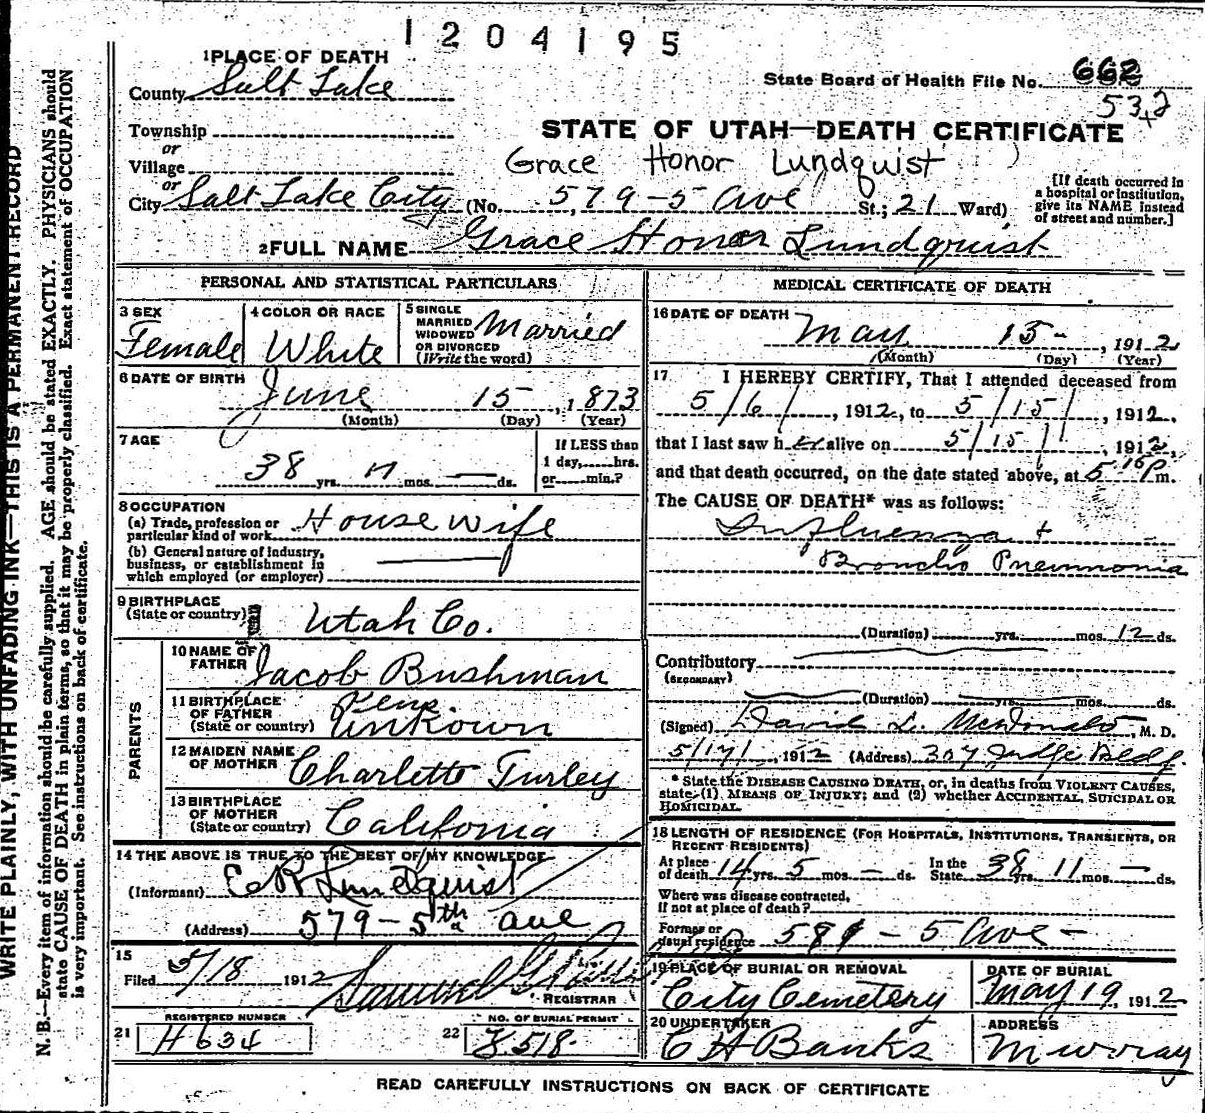 1204195
1 PLACE OF DEATH
County Salt Lake
State Board of Health File No. 662
532
Township
or
STATE OF UTAH—DEATH CERTIFICATE
Village
Grace Honor Lundquist
or
City Salt Lake City (No. 579-5 Ave St.; 21 Ward)
[If death occurred in a hospital or institution, give its NAME instead of street and number.]
2 FULL NAME Grace Honor Lundquist
PERSONAL AND STATISTICAL PARTICULARS
3 SEX
Female
4 COLOR OR RACE
White
5 SINGLE
MARRIED
WIDOWED
OR DIVORCED
(Write the word)
Married
6 DATE OF BIRTH
June 15, 1873
(Month) (Day) (Year)
7 AGE
38 yrs. 11 mos. — ds.
If LESS than
1 day,......hrs.
or......min.?
8 OCCUPATION
(a) Trade, profession or
particular kind of work
Housewife
(b) General nature of industry,
business, or establishment in
which employed (or employer)
9 BIRTHPLACE
(State or country)
Utah Co.
PARENTS
10 NAME OF
FATHER
Jacob Bushman
11 BIRTHPLACE
OF FATHER
(State or country)
Penn
Unkown
12 MAIDEN NAME
OF MOTHER
Charlette Turley
13 BIRTHPLACE
OF MOTHER
(State or country)
Califonia
14 THE ABOVE IS TRUE TO THE BEST OF MY KNOWLEDGE
(Informant) E R Lundquist
(Address) 579-5th ave
15
Filed 5/18 1912 Samuel G
REGISTRAR
REGISTERED NUMBER
21 H 634
NO. OF BURIAL PERMIT
22 518
MEDICAL CERTIFICATE OF DEATH
16 DATE OF DEATH
May 15-, 1912
(Month) (Day) (Year)
17 I HEREBY CERTIFY, That I attended deceased from
5/6/, 1912, to 5/15/, 1912,
that I last saw h er alive on 5/15/, 1912,
and that death occurred, on the date stated above, at 5 16 P m.
The CAUSE OF DEATH* was as follows:
Influenza +
Broncho Pneumonia
(Duration) yrs. mos. 12 ds.
Contributory
(SECONDARY)
(Duration) yrs. mos. ds.
(Signed) David L. McDonald, M. D.
5/17/, 1912 (Address) 307 Judge Bldg.
* State the DISEASE CAUSING DEATH, or, in deaths from VIOLENT CAUSES,
state (1) MEANS OF INJURY; and (2) whether ACCIDENTAL, SUICIDAL OR
HOMICIDAL.
18 LENGTH OF RESIDENCE (FOR HOSPITALS, INSTITUTIONS, TRANSIENTS, OR
RECENT RESIDENTS)
At place
of death 14 yrs. 5 mos. — ds.
In the
State 38 yrs. 11 mos. — ds.
Where was disease contracted,
if not at place of death?
Former or
usual residence 589 - 5 Ave -
19 PLACE OF BURIAL OR REMOVAL
City Cemetery
DATE OF BURIAL
May 19 1912
20 UNDERTAKER
C H Banks
ADDRESS
Murray
READ CAREFULLY INSTRUCTIONS ON BACK OF CERTIFICATE
WRITE PLAINLY, WITH UNFADING INK—THIS IS A PERMANENT RECORD
N. B.—Every item of information should be carefully supplied. AGE should be stated EXACTLY. PHYSICIANS should
state CAUSE OF DEATH in plain terms, so that it may be properly classified. Exact statement of OCCUPATION
is very important. See instructions on back of certificate.